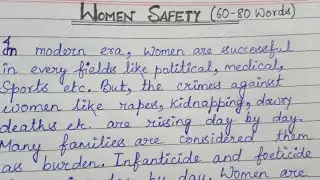 WOMEN SAFETY (60-80 Words)
In modern era, women are successful
in every fields like political, medical,
Sports etc. But, the crimes against
women like rapes, kidnapping, dowry
deaths etc. are rising day by day.
Many families are considered them
as burden. Infanticide and foeticide
day by day. Women are